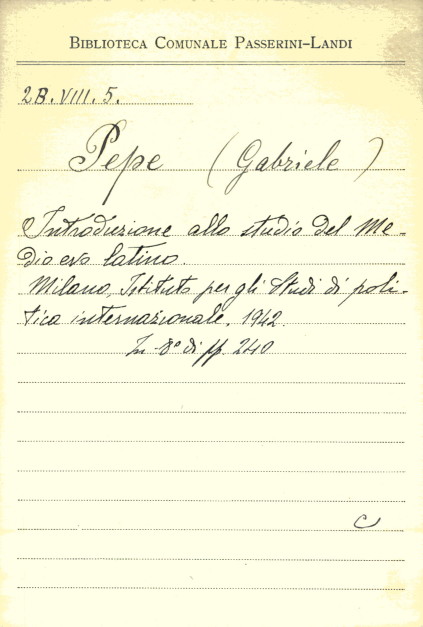 BIBLIOTECA COMUNALE PASSERINI-LANDI
2B.VIII.5.
Pepe (Gabriele)
Introduzione allo studio del Me-
dio evo latino.
Milano, Istituto per gli Studi di poli-
tica internazionale. 1942.
In-8° di pp. 240
C